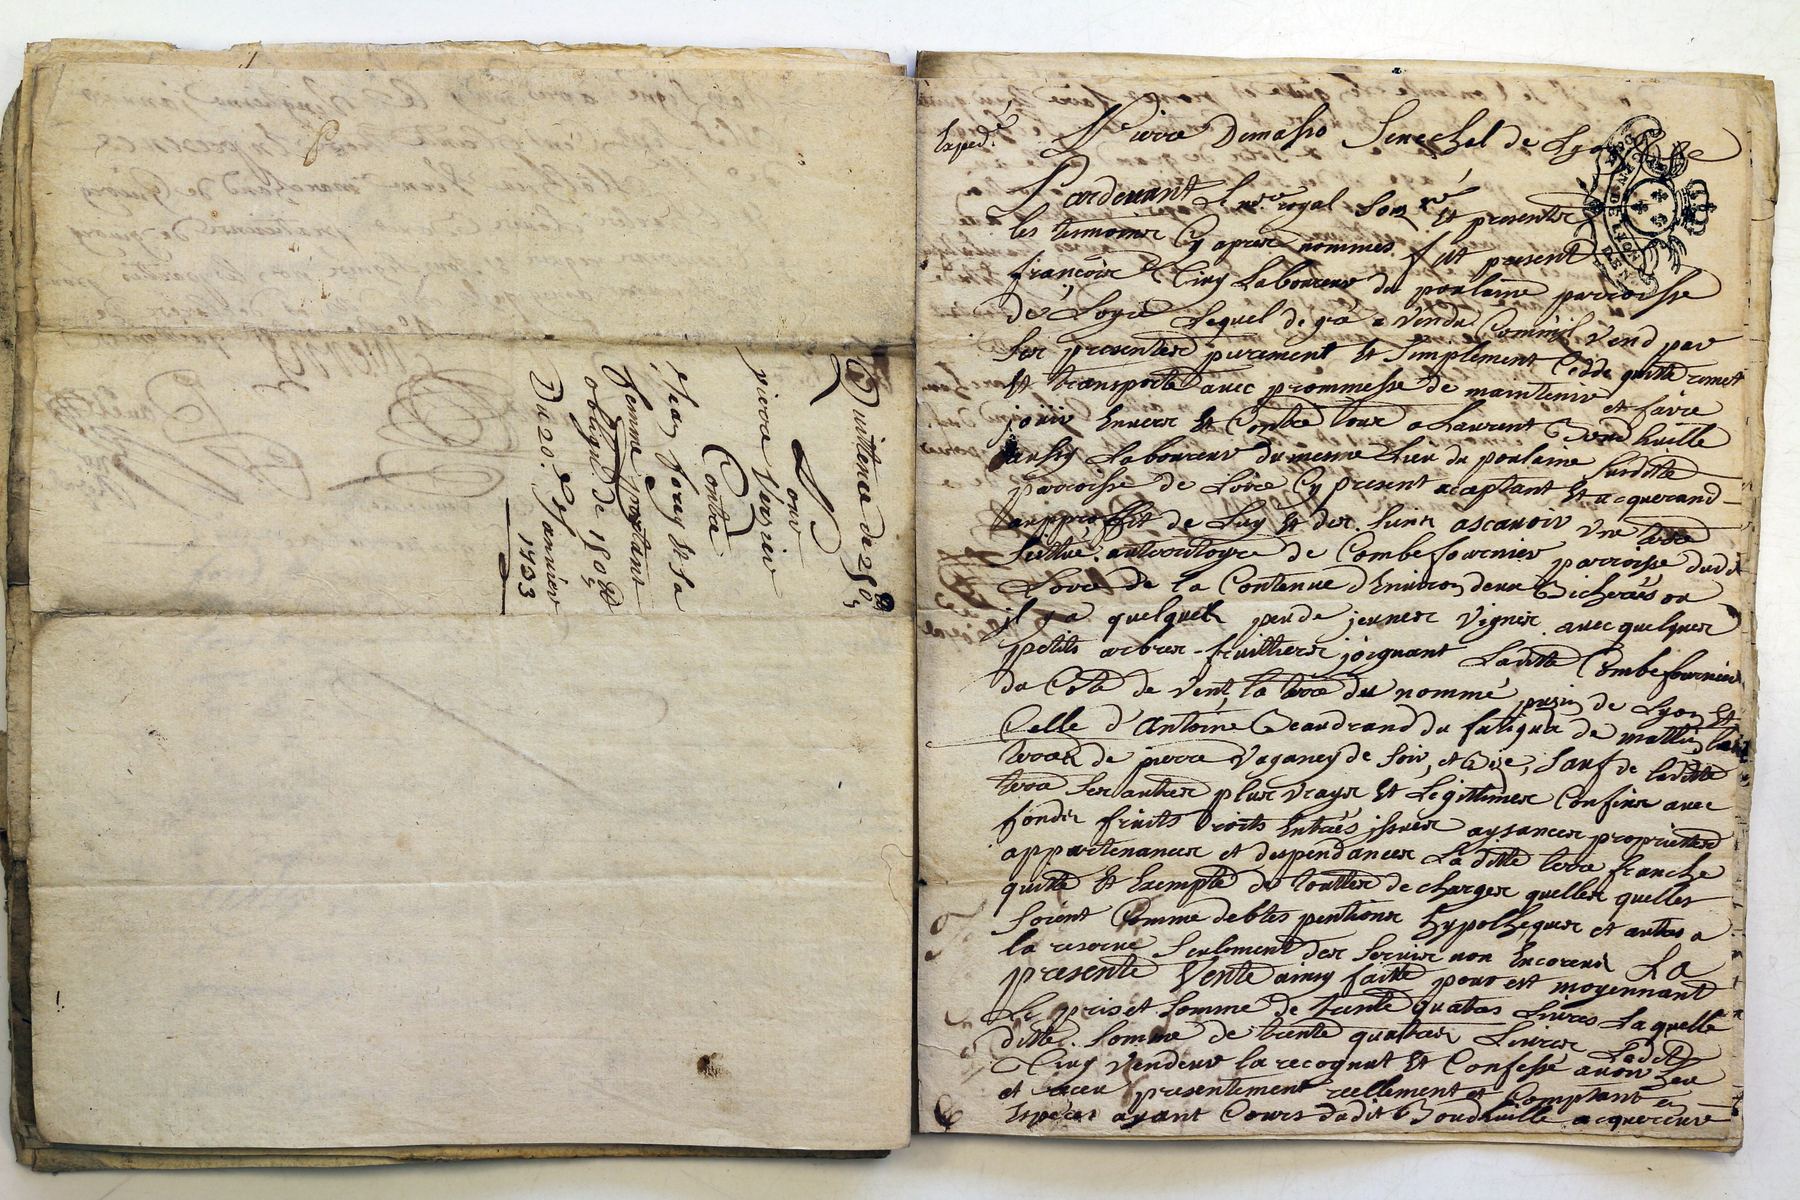 Quittence de
Pour
pierre Verrier
Contre
Jean
femme portant
obligé de
Du 20.e Janvier
1733
Expedé.
Pierre Demasso Senechal de Lyon
Pardevant Le no.re royal et presents
les tesmoins Cy apres nommes. fut present
françois Laboureur du poulaine parroisse
de Loyre Lequel de gré a vendu Comme il vend par
ses presentes purement Et Simplement Cedde quitte remet
Et transporte avec prommesse de maintenir et faire
jouir Envers Et Contre tous a Laurent
aussy Laboureur du mesme Lieu du poulaine susditte
parroisse de Loire Cy present acaptant Et acquerand
au proffit de Luy Et des siens ascavoir une terre
Scittué au territoyre de Combefournier parroisse dudit
Loire de la Contenue d'Environ deux Bicherées ou
jl y a quelque peu de jeunes vignes avec quelques
petits arbres fruittiers joignant Laditte Combefournier
du Coté de vent, la terre du nommé de Lyon Et
Celle d'Antoine Beaudrand du de la
terre de pierre Vaganey de Soir, et Bize, Sauf de laditte
terre ses autres plus vrays Et Legittimes Confins avec
fonds fruits droits Entrées jssues aysances proprietés
appartenances et despendances Laditte terre franche
quitte Et Exempte de touttes de charges quelles quelles
soient Comme debtes pentions hypotheques et autres a
la reserve Seulement des Servis non Encourus La
presente Vente ainsy faitte pour est moyennant
Le pris et Somme de trente quatres Livres Laquelle
ditte Somme de trente quattres Livres Ledit
vendeur la recognut Et Confesse avoir heu
et receu presentement reellement et Comptant en
Espéces ayant Cours dudit acquereur